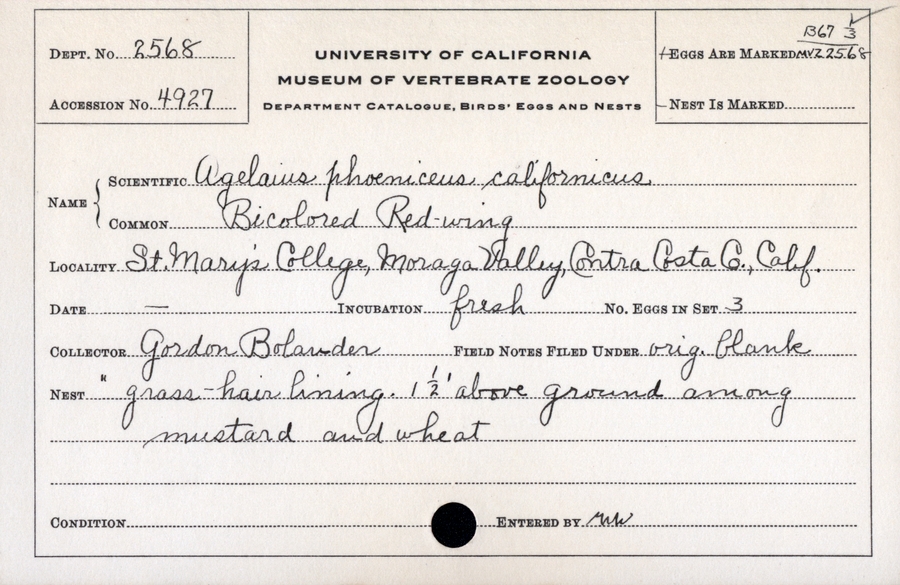 DEPT. NO. 2568
ACCESSION NO. 4927
UNIVERSITY OF CALIFORNIA
MUSEUM OF VERTEBRATE ZOOLOGY
DEPARTMENT CATALOGUE, BIRDS' EGGS AND NESTS
B67 1/3
EGGS ARE MARKED MVZ 2568
NEST IS MARKED
NAME
SCIENTIFIC Agelaius phoeniceus californicus
COMMON Bicolored Red-wing
LOCALITY St. Mary's College, Moraga Valley, Contra Costa Co., Calif.
DATE — INCUBATION fresh NO. EGGS IN SET 3
COLLECTOR Gordon Bolander FIELD NOTES FILED UNDER orig. blank
NEST " grass-hair lining. 1 1/2' above ground among
mustard and wheat
CONDITION ENTERED BY